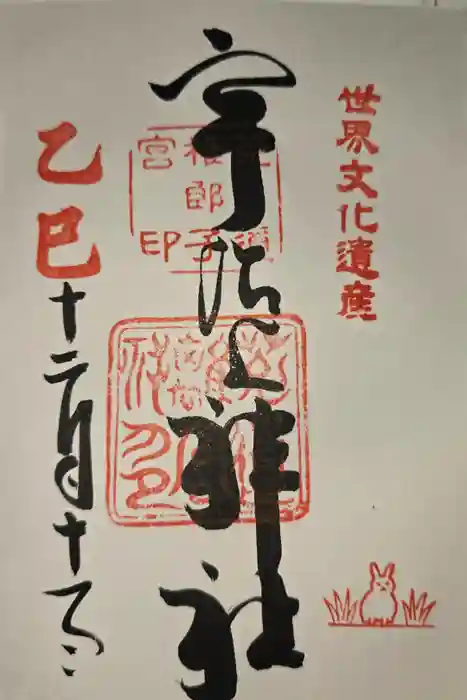 世界文化遺産
宇治上神社
稚郎子
宮印
乙巳
十二月十